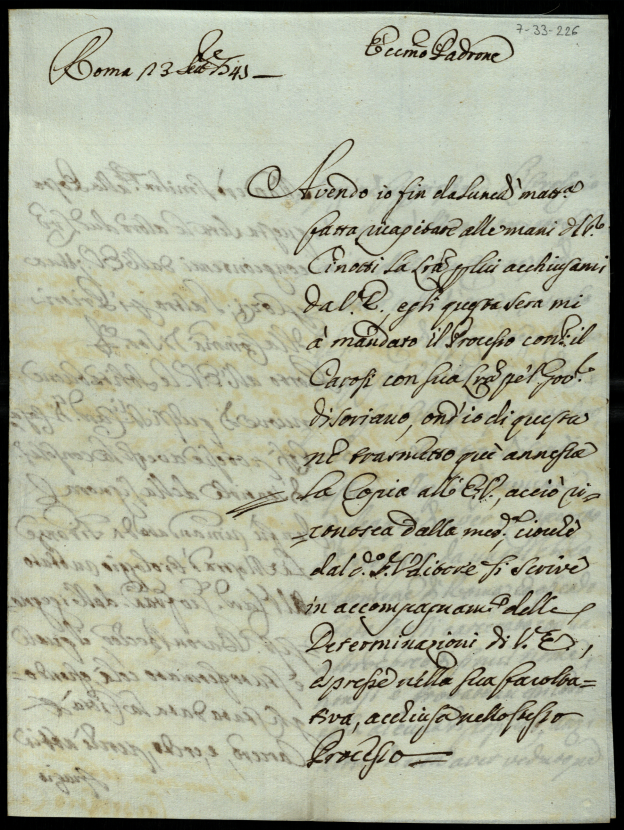 7-33-226
Ecc.mo Padrone
Roma 23 Sett.re 1741
Avendo io fin da Lunedì matt.a
fatta ricapitare alle mani di V.
Cinotti la Lra p lui acchiusami
da V. E., egli questa sera mi
à mandato il Processo cont. il
Carosi con sua Lra pe'l Gov.re
di Soriano, ond'io di questa
ne trasmetto quì annessa
la Copia all'E. V., acciò ri-
conosca dalla med.a ciocchè
dal d.o si scrive
in accompagnam.o delle
Determinazioni di V. E.,
espresse nella sua facolta-
tiva, acchiusa nello stesso
Processo